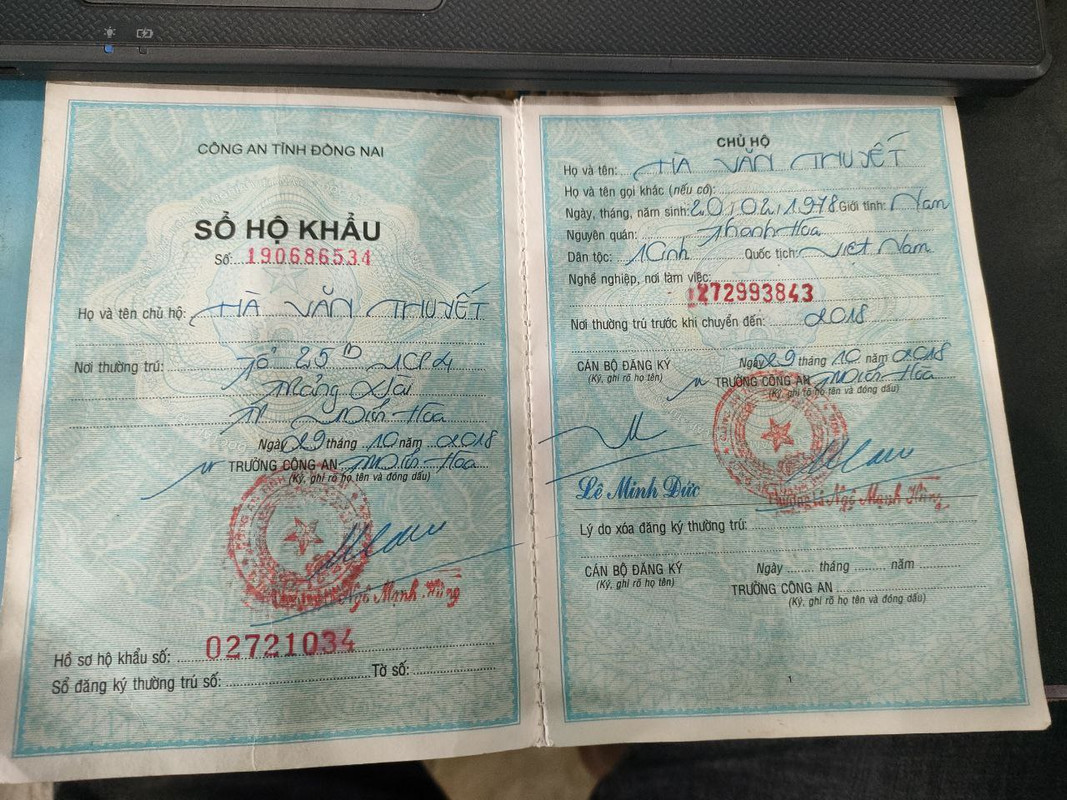 CÔNG AN TỈNH ĐỒNG NAI
SỔ HỘ KHẨU
Số: 190686534
Họ và tên chủ hộ: HÀ VĂN THUYẾT
Nơi thường trú: Tổ 25ᴰ KP4
Trảng Dài
TP Biên Hòa
Ngày 29 tháng 10 năm 2018
TRƯỞNG CÔNG AN Biên Hòa
(Ký, ghi rõ họ tên và đóng dấu)
Ngô Mạnh Hùng
Hồ sơ hộ khẩu số: 02721034
Sổ đăng ký thường trú số: Tờ số:
CHỦ HỘ
Họ và tên: HÀ VĂN THUYẾT
Họ và tên gọi khác (nếu có):
Ngày, tháng, năm sinh: 20/02/1978 Giới tính: Nam
Nguyên quán: Thanh Hóa
Dân tộc: Kinh Quốc tịch: Việt Nam
Nghề nghiệp, nơi làm việc:
272993843
Nơi thường trú trước khi chuyển đến: 2018
Ngày 29 tháng 10 năm 2018
CÁN BỘ ĐĂNG KÝ
(Ký, ghi rõ họ tên)
TRƯỞNG CÔNG AN Biên Hòa
(Ký, ghi rõ họ tên và đóng dấu)
Lê Minh Đức
Ngô Mạnh Hùng
Lý do xóa đăng ký thường trú:
Ngày ........ tháng ........ năm ........
CÁN BỘ ĐĂNG KÝ
(Ký, ghi rõ họ tên)
TRƯỞNG CÔNG AN
(Ký, ghi rõ họ tên và đóng dấu)
1